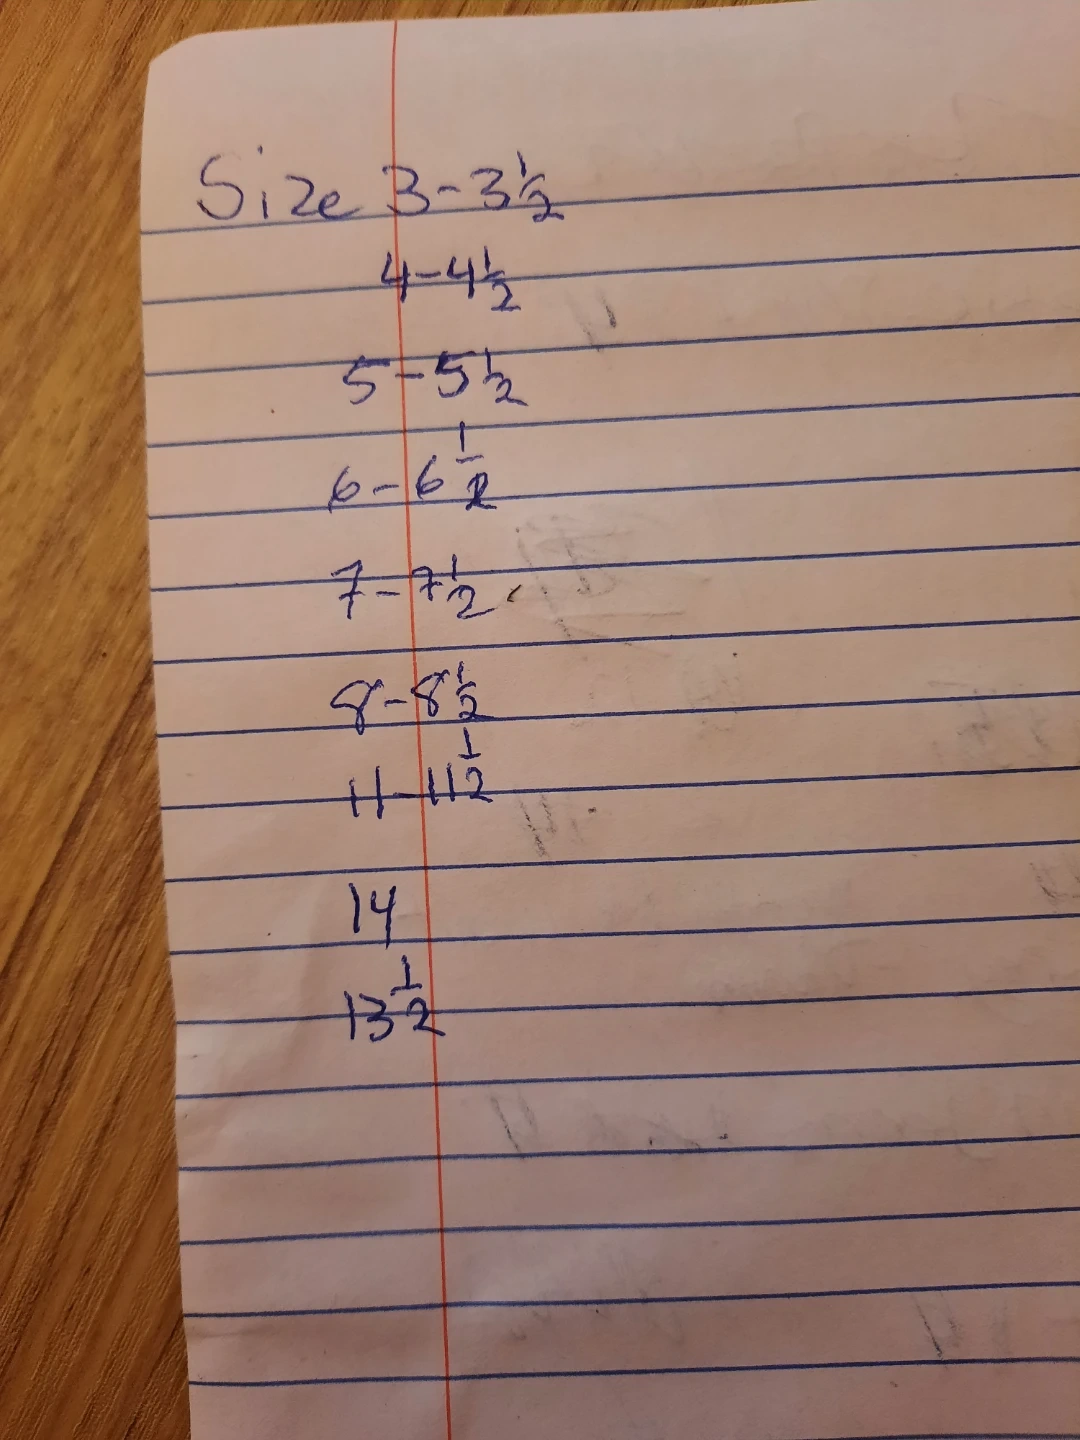 Size 3-3½
4-4½
5-5½
6-6½
7-7½
8-8½
11-11½
14
13½